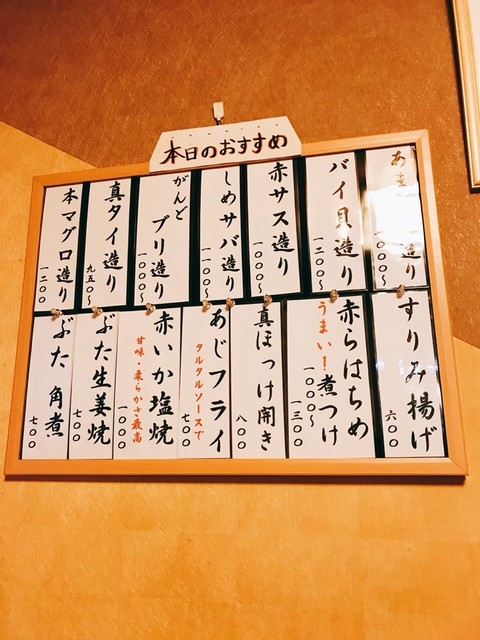 本日のおすすめ
造り
一〇〇〇〜
バイ貝造り
一二〇〇〜
赤サス造り
一〇〇〇〜
しめサバ造り
一一〇〇〜
がんど
ブリ造り
一〇〇〇〜
真タイ造り
九五〇〜
本マグロ造り
一二〇〇
すりみ揚げ
六〇〇
赤らはちめ
うまい!煮つけ
一〇〇〇〜
一三〇〇
真ほっけ開き
八〇〇
あじフライ
タルタルソースで
七〇〇
赤いか塩焼
甘味・柔らかさ最高
一〇〇〇
ぶた生姜焼
七〇〇
ぶた角煮
七〇〇